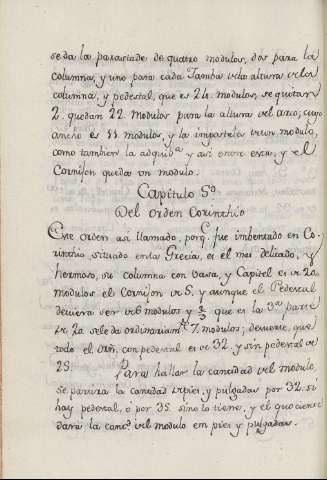 se da la parastade de quatro modulos, dos para la
columna, y uno para cada Jamba de la altura de la
columna, y pedestal, que es 24. modulos, se quitan
2. quedan 22. modulos para la altura del arco, cuyo
ancho es 11. modulos, y la imposta de un modulo,
como tambien la
y asi entre esta, y el
Cornison queda un modulo.
Capitulo 5º
Del orden Corinthio
Este orden asi llamado, porq.e fue imbentado en Co
rinthio situado en la Grecia, es el mas delicado, y
hermoso, su columna con vasa, y Capitel es de 20
modulos el Cornison de 5, y aunque el Pedestal
deviera ser de 6 modulos y 2/3 que es la 3ª parte
de 20 se le da ordinariamte 7. modulos, de suerte, que
todo el orñ. con pedestal es de 32. y sin pedestal de
25. Para hallar la cantidad del modulo,
se partira la cantidad de pies, y pulgadas por 32. si
hay pedestal, o por 25. si no lo tiene, y el quociente
dara la canᵈ. del modulo em pies y pulgadas.